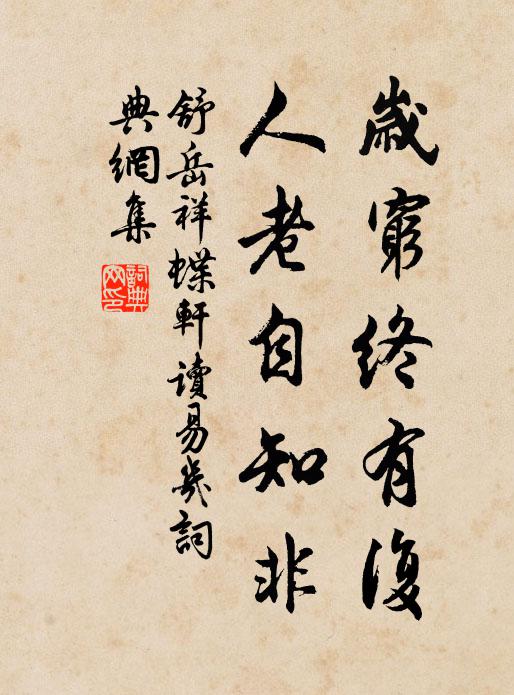 歲窮終有復
人老自知非
舒岳祥蝶軒讀易幾詞
典網集
詞典網印